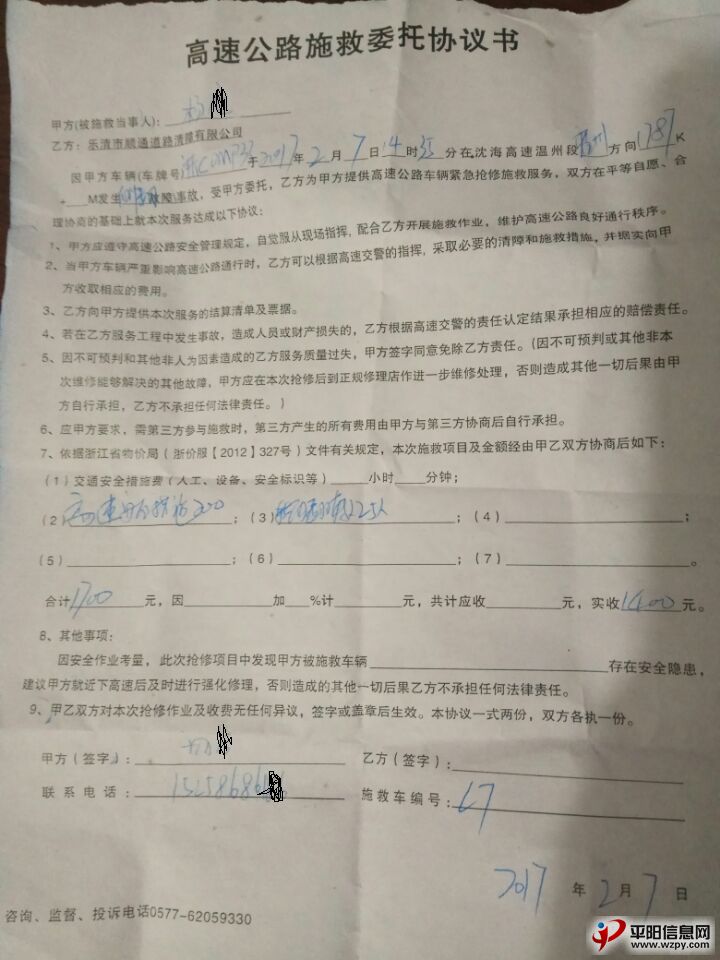 高速公路施救委托协议书
甲方(被施救当事人):
乙方：乐清市顺通道路清障有限公司
因甲方车辆(车牌号 年2017年2月7日4时 分在沈海高速温州段 方向1787K
+ M发生 故障事故，受甲方委托，乙方为甲方提供高速公路车辆紧急抢修施救服务，双方在平等自愿、合
理协商的基础上就本次服务达成以下协议：
1、甲方应遵守高速公路安全管理规定，自觉服从现场指挥，配合乙方开展施救作业，维护高速公路良好通行秩序。
2、当甲方车辆严重影响高速公路通行时，乙方可以根据高速交警的指挥，采取必要的清障和施救措施，并据实向甲
方收取相应的费用。
3、乙方向甲方提供本次服务的结算清单及票据。
4、若在乙方服务工程中发生事故，造成人员或财产损失的，乙方根据高速交警的责任认定结果承担相应的赔偿责任。
5、因不可预判和其他非人为因素造成的乙方服务质量过失，甲方签字同意免除乙方责任。（因不可预判或其他非本
次维修能够解决的其他故障，甲方应在本次抢修后到正规修理店作进一步维修处理，否则造成其他一切后果由甲
方自行承担，乙方不承担任何法律责任。）
6、应甲方要求，需第三方参与施救时，第三方产生的所有费用由甲方与第三方协商后自行承担。
7、依据浙江省物价局（浙价服【2012】327号）文件有关规定，本次施救项目及金额经由甲乙双方协商后如下：
(1)交通安全措施费（人工、设备、安全标识等） 小时 分钟；
(2)高速 ；(3) ；(4) ；
(5) ；(6) ；(7) 。
合计1700元，因 加 %计 元，共计应收 元，实收1400元。
8、其他事项：
因安全作业考量，此次抢修项目中发现甲方被施救车辆 存在安全隐患，
建议甲方就近下高速后及时进行强化修理，否则造成的其他一切后果乙方不承担任何法律责任。
9、甲乙双方对本次抢修作业及收费无任何异议，签字或盖章后生效。本协议一式两份，双方各执一份。
甲方（签字）： 乙方（签字）：
联系电话：15258686 施救车编号：67
2017年2月7日
咨询、监督、投诉电话0577-62059330
平阳信息网
www.wzpy.com